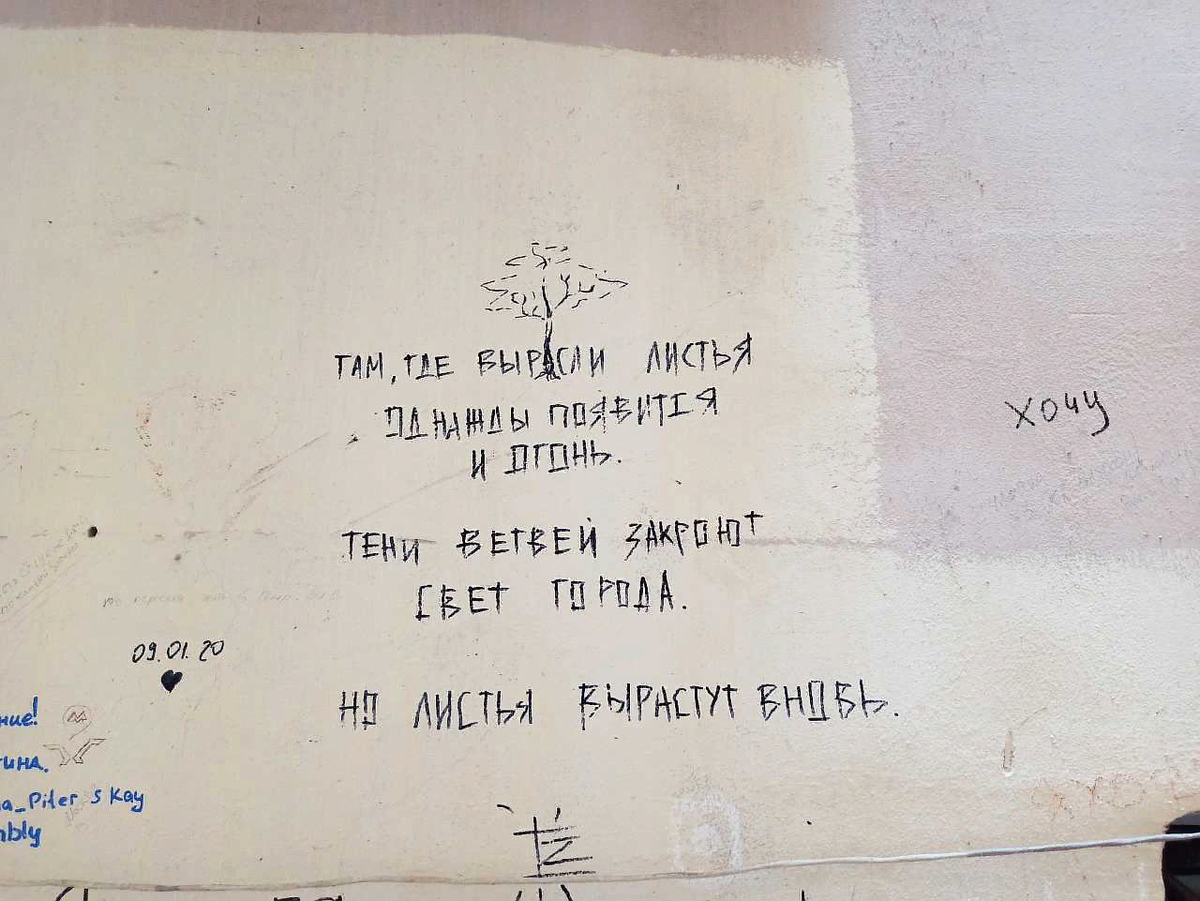 ТАМ, ГДЕ ВЫРАСЛИ ЛИСТЬЯ
ОДНАЖДЫ ПОЯВИТСЯ
И ОГОНЬ.
ТЕНИ ВЕТВЕЙ ЗАКРОЮТ
СВЕТ ГОРОДА.
НО ЛИСТЬЯ ВЫРАСТУТ ВНОВЬ.
хочу
09.01.20
ние!
ТИНА.
a_Piter s kay
mbly